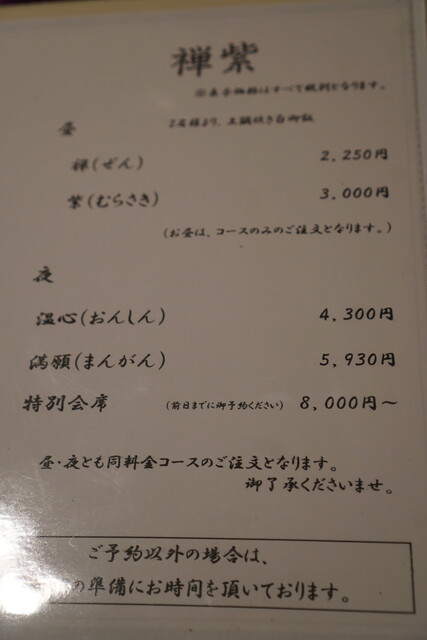 禅紫
※表示価格はすべて税別となります。
昼　2名様より、土鍋炊き白御飯
禅(ぜん)　2,250円
紫(むらさき)　3,000円
(お昼は、コースのみのご注文となります。)
夜
温心(おんしん)　4,300円
満願(まんがん)　5,930円
特別会席　(前日までに御予約ください)　8,000円～
昼・夜とも同料金コースのご注文となります。
御了承くださいませ。
ご予約以外の場合は、
の準備にお時間を頂いております。